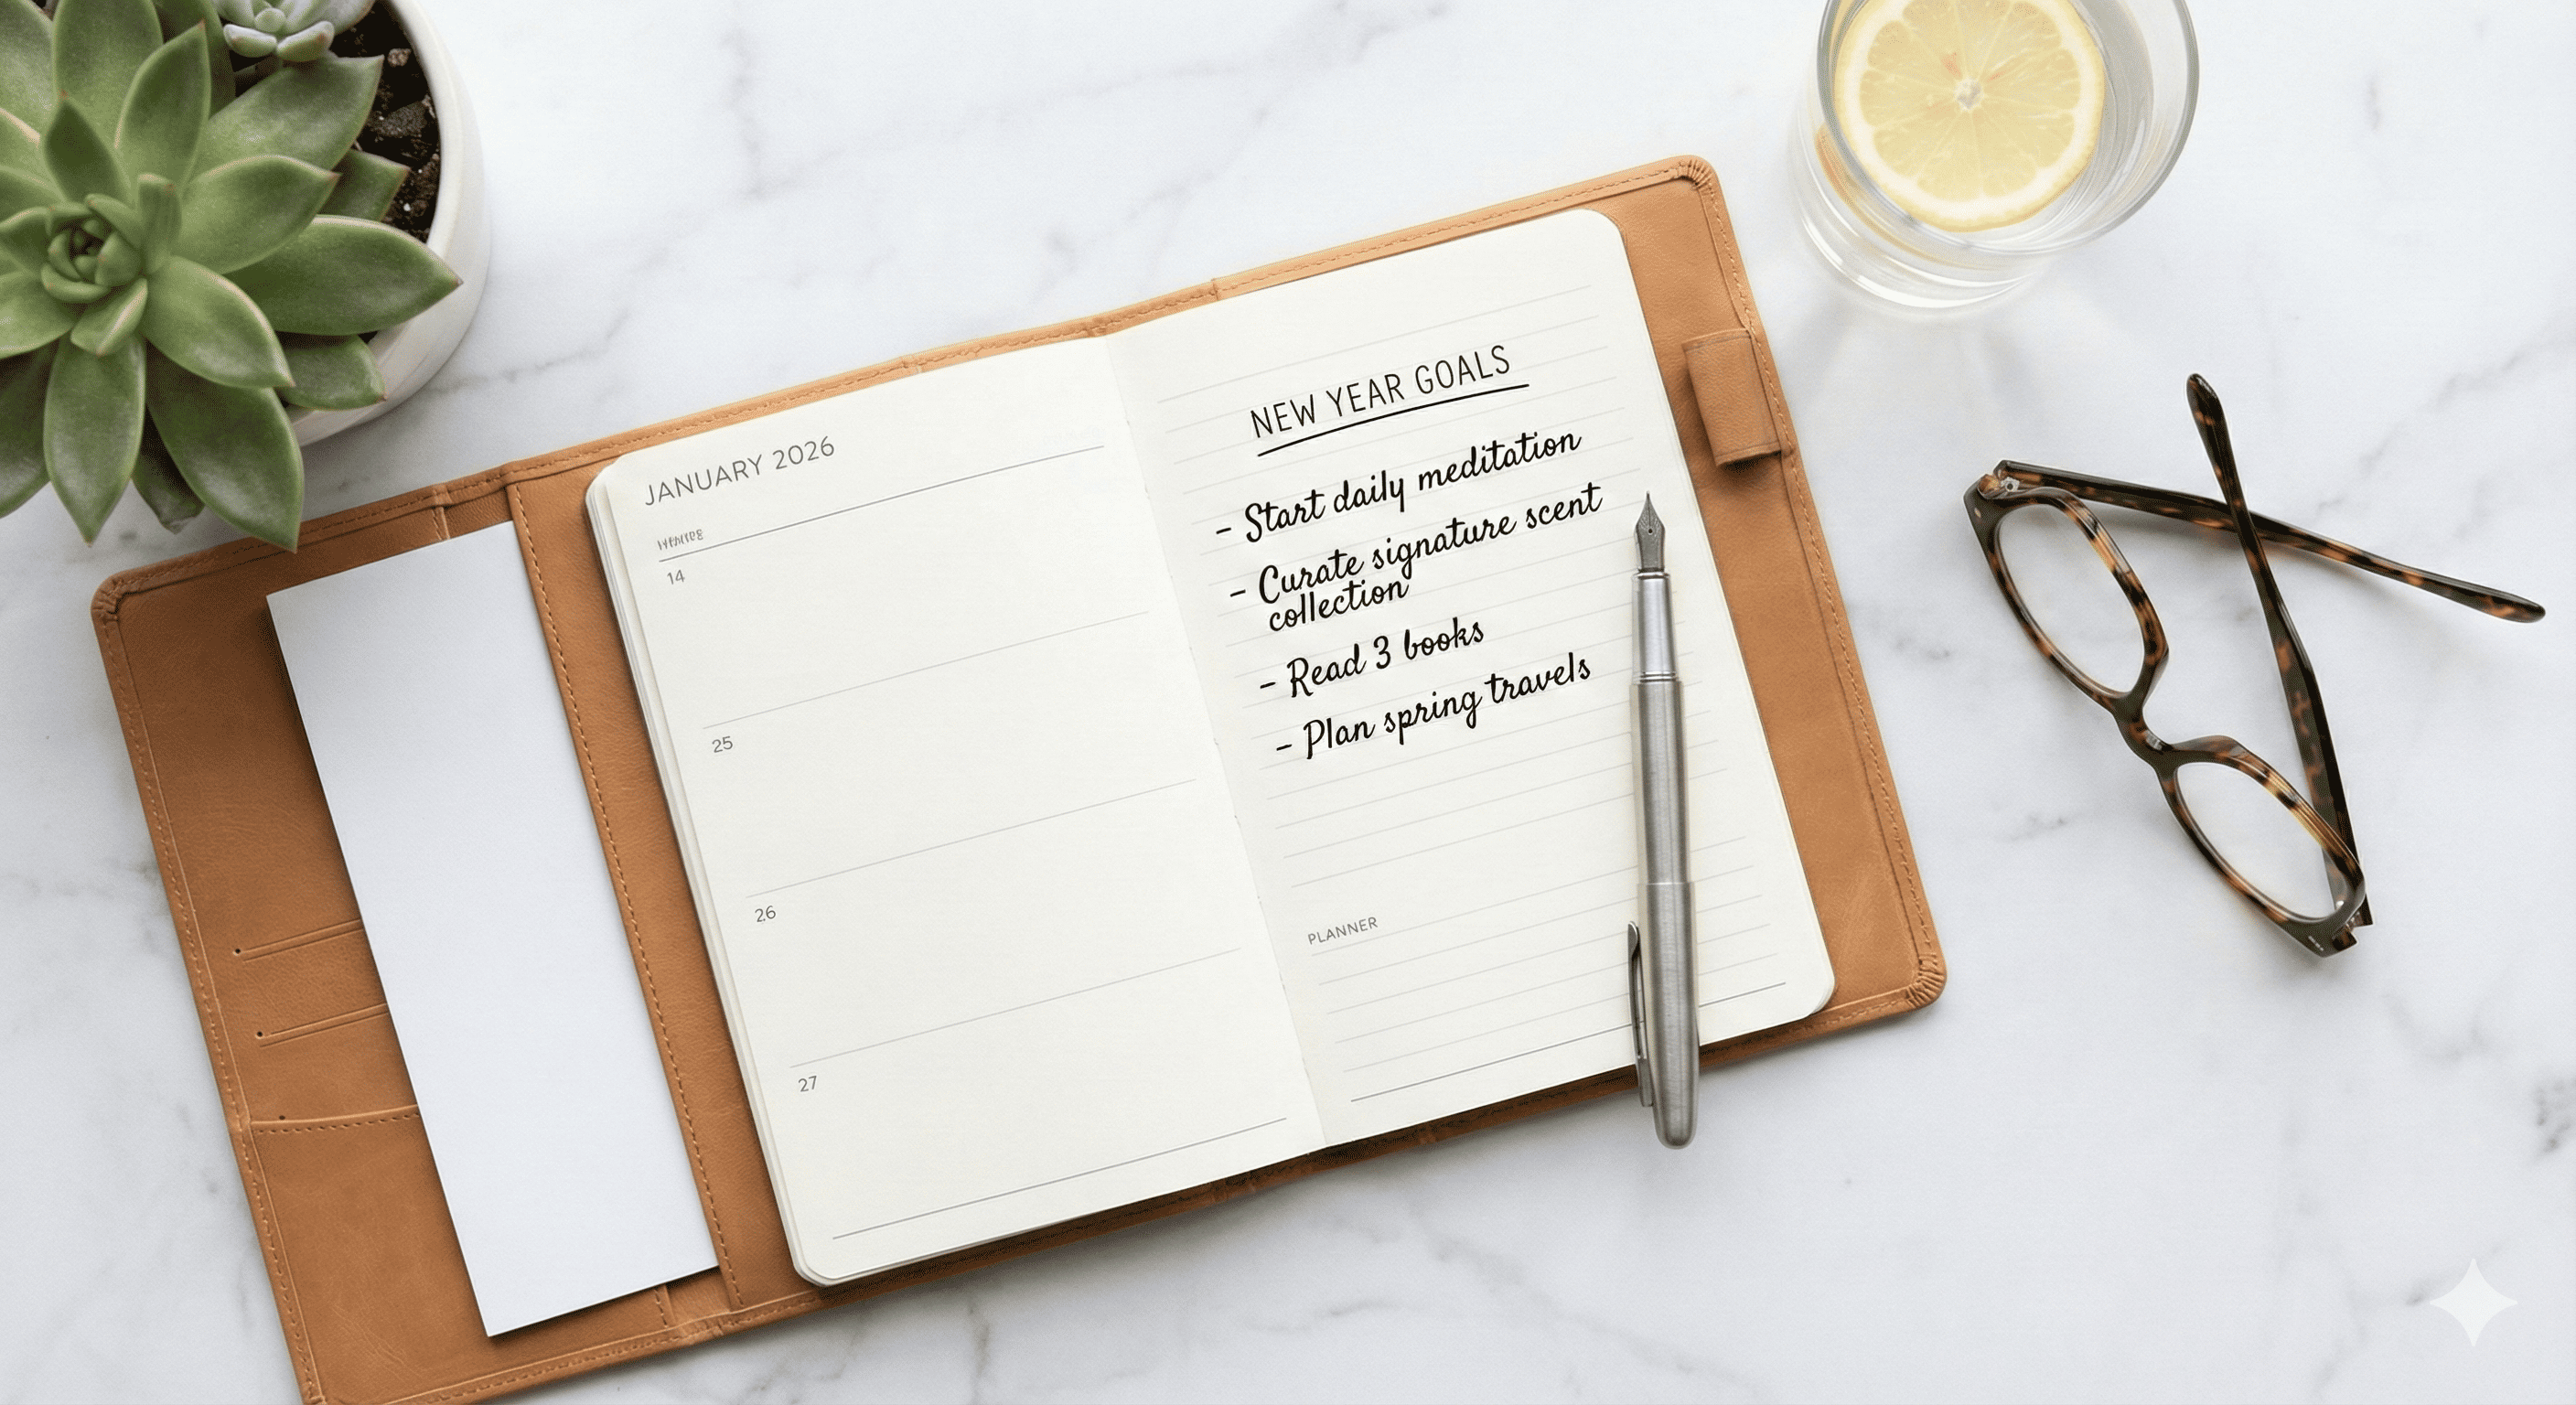 JANUARY 2026
14
25
26
27
NEW YEAR GOALS
- Start daily meditation
- Curate signature scent
collection
- Read 3 books
- Plan spring travels
PLANNER